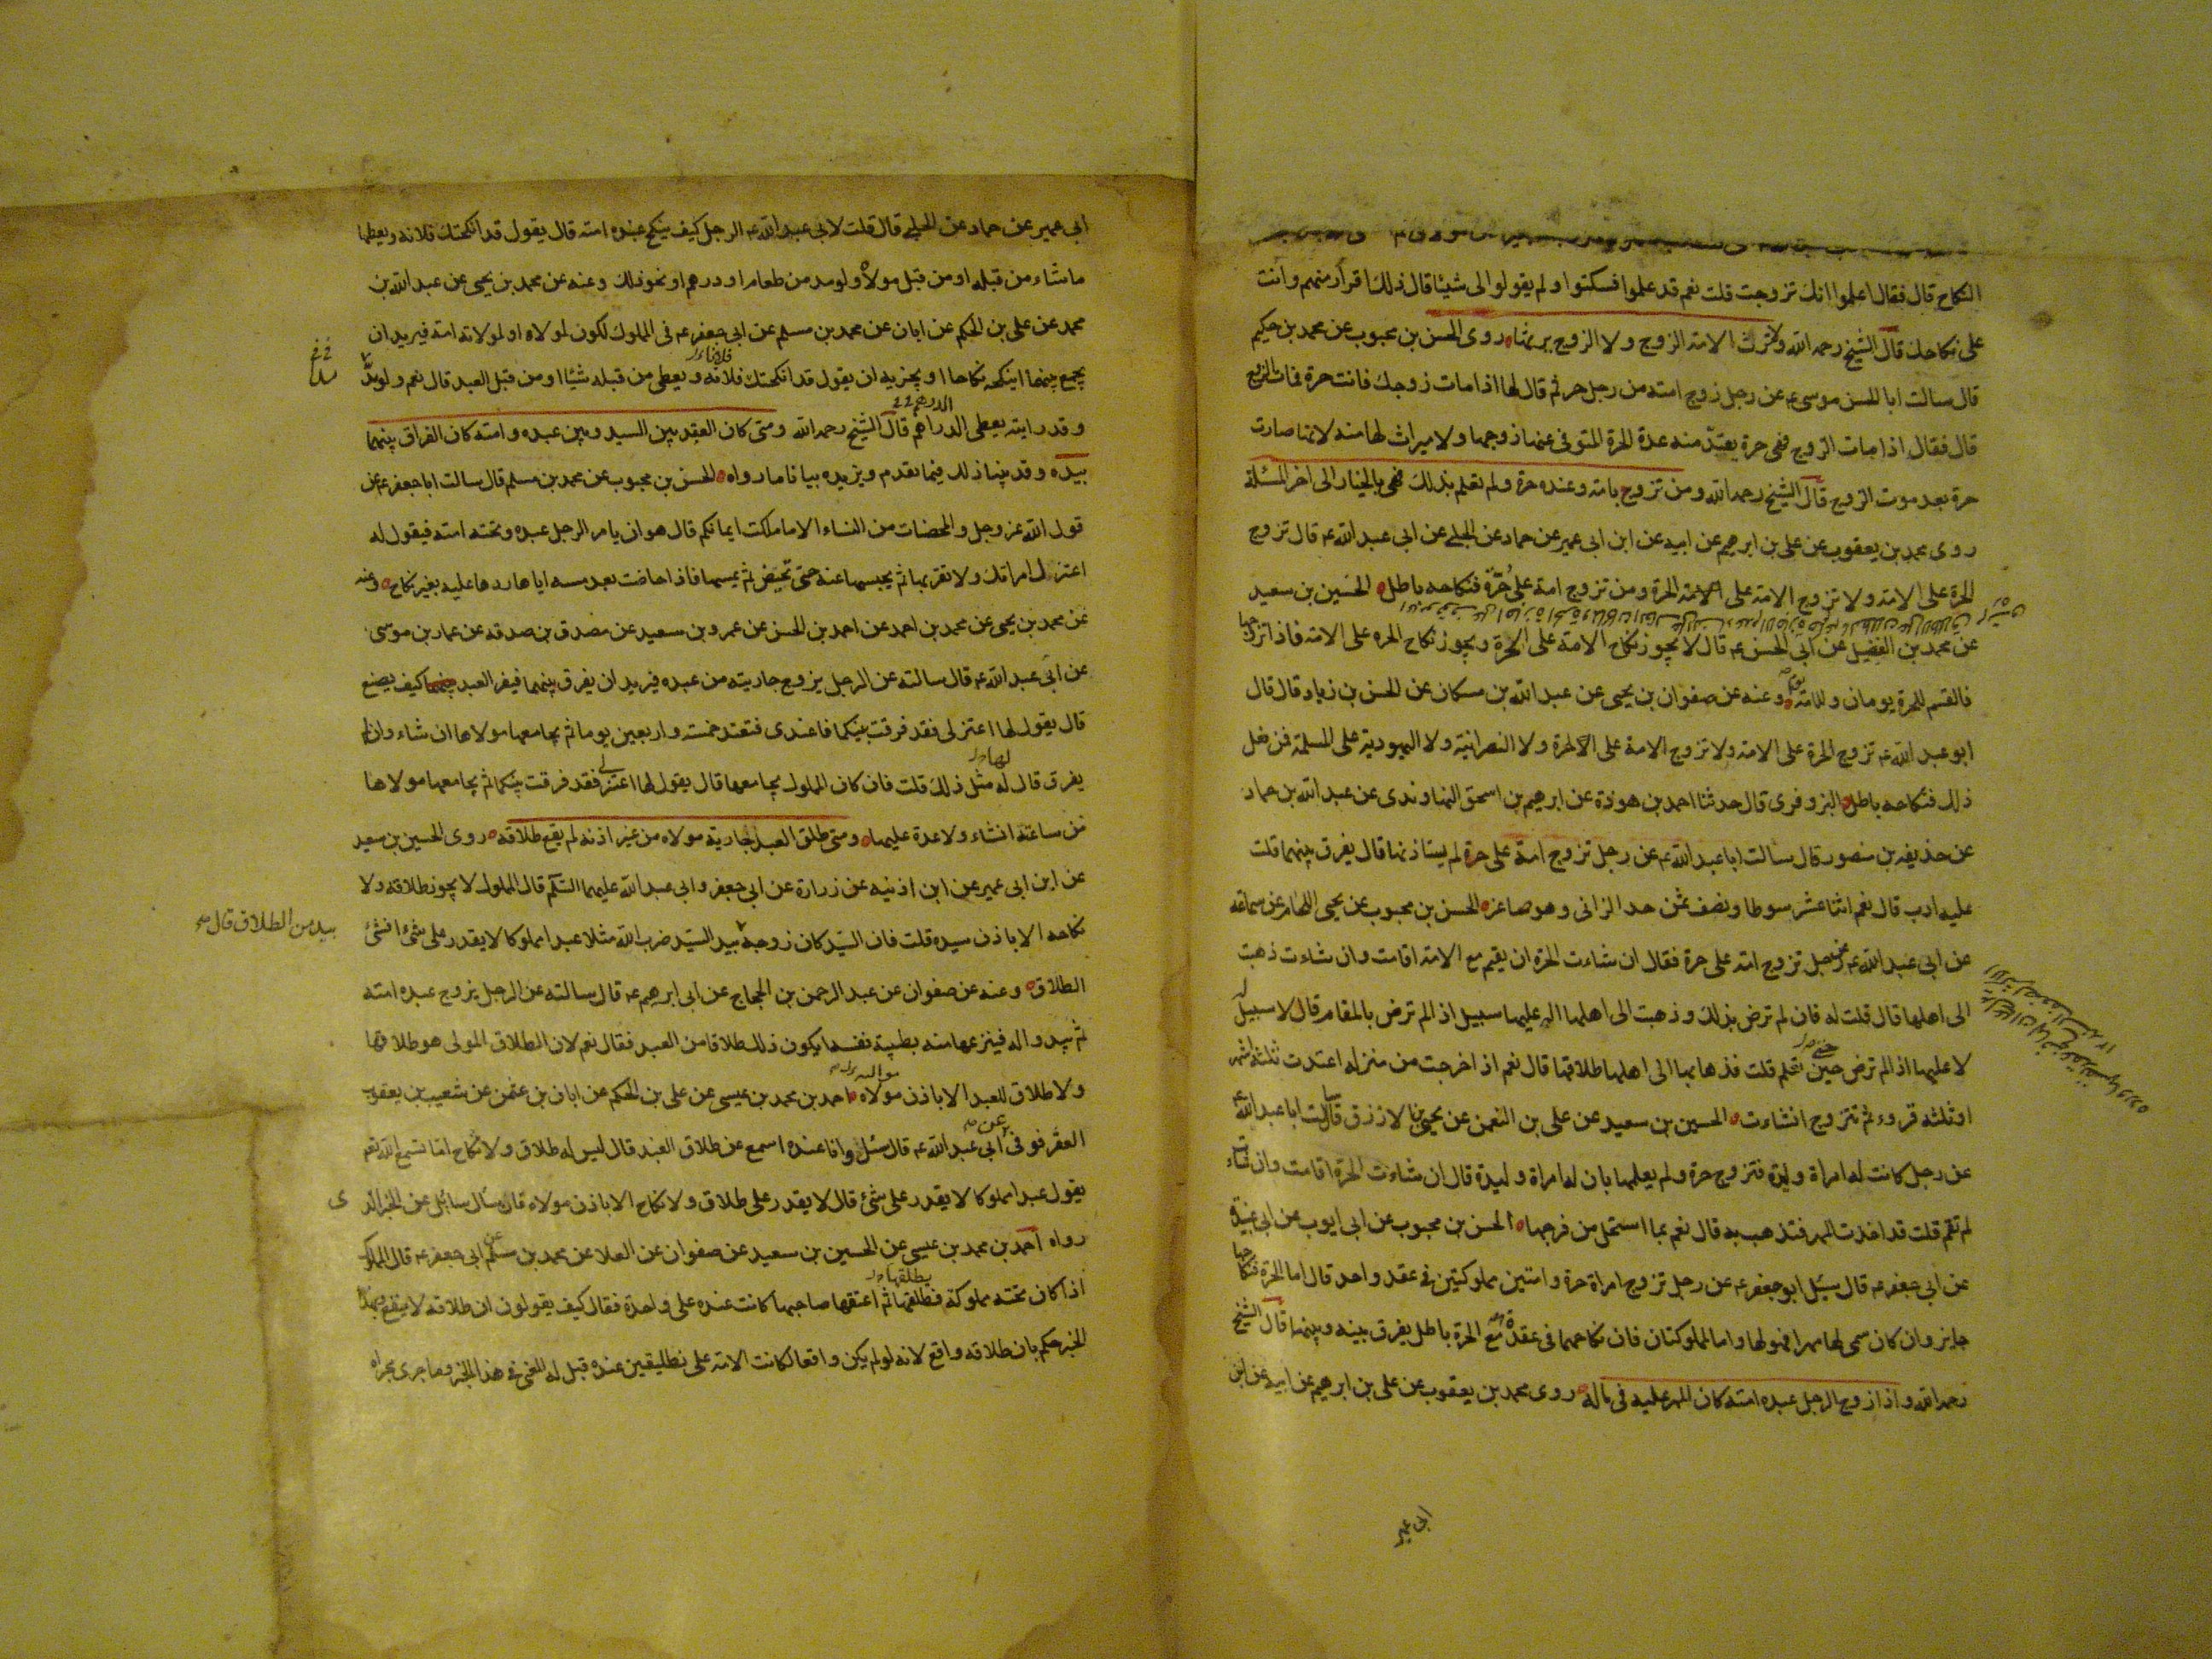 النكاح قال فقال اعلموا انك تزوجت قلت نعم قد علموا فسكتوا ولم يقولوا لى شيئا قال ذلك اقرار منهم وانت
على نكاحك قال الشيخ رحمه الله ولا ترث الامة الزوج ولا الزوج يرثها روى الحسن بن محبوب عن محمد بن حكيم
قال سالت ابا الحسن موسى ع عن رجل زوج امته من رجل حر ثم قال لها اذا مات زوجك فانت حرة فمات الزوج
قال فقال اذا مات الزوج فهى حرة يعتد منه عدة الحرة المتوفى عنها زوجها ولا ميراث لها منه لانها صارت
حرة بعد موت الزوج قال الشيخ رحمه الله ومن تزوج بامة وعنده حرة ولم تعلم بذلك فهى بالخيار الى اخر المسئلة
روى محمد بن يعقوب عن على بن ابرهيم عن ابيه عن ابن ابى عمير عن حماد عن الحلبى عن ابى عبد الله ع قال تزوج
الحرة على الامة ولا تزوج الامة على الحرة ومن تزوج امة على حرة فنكاحه باطل الحسين بن سعيد
عن محمد بن الفضيل عن ابى الحسن ع قال لا يجوز نكاح الامة على الحرة ويجوز نكاح الحره على الامة فاذا تزوجها
فالقسم للحرة يومان وللامة يوم وعنه عن صفوان بن يحيى عن عبد الله بن مسكان عن الحسن بن زياد قال قال
ابو عبد الله ع تزوج الحرة على الامة ولا تزوج الامة على الحرة ولا النصرانية ولا اليهودية على المسلمة فمن فعل
ذلك فنكاحه باطل البزوفرى قال حدثنا احمد بن هوذة عن ابرهيم بن اسحق النهاوندى عن عبد الله بن حماد
عن حذيفه بن منصور قال سالت ابا عبد الله ع عن رجل تزوج امة على حرة لم يستاذنها قال يفرق بينهما قلت
عليه ادب قال نعم اثنا عشر سوطا ونصف ثمن حد الزانى وهو صاغر الحسن بن محبوب عن يحيى اللحام عن سماعه
عن ابى عبد الله ع عن رجل تزوج امة على حرة فقال ان شاءت الحرة ان يقيم مع الامة اقامت وان شاءت ذهبت
الى اهلها قال قلت له فان لم ترض بذلك وذهبت الى اهلها اله عليها سبيل اذا لم ترض بالمقام قال لا سبيل له
لا عليها اذا لم ترض حين تعلم قلت فذهابها الى اهلها طلاقها قال نعم اذا خرجت من منزله اعتدت ثلثة اشهر
او ثلثه قروء ثم تتزوج ان شاءت الحسين بن سعيد عن على بن النعمن عن يحيى الازرق قال سالت ابا عبد الله ع
عن رجل كانت له امراة وليدة فتزوج حرة ولم يعلمها بان له امراة وليدة قال ان شاءت الحرة اقامت وان شاءت
لم تقم قلت قد اخذت المهر فتذهب به قال نعم بما استحل من فرجها الحسن بن محبوب عن ابى ايوب عن ابى عبيدة
عن ابى جعفر ع قال سئل ابو جعفر ع عن رجل تزوج امراة حرة وامتين مملوكتين فى عقد واحد قال اما الحرة فنكاحها
جايز وان كان سمى لها مهرا فهو لها واما المملوكتان فان نكاحهما فى عقدة مع الحرة باطل يفرق بينه وبينهما قال الشيخ
رحمه الله واذا زوج الرجل عبده امته كان المهر عليه فى ماله روى محمد بن يعقوب عن على بن ابرهيم عن ابيه عن ابن
ابى عمير
ابى عمير عن حماد عن الحلبى قال قلت لابى عبد الله ع الرجل كيف ينكح عبده امته قال يقول قد انكحتك فلانة ويعطها
ما شاء من قبله او من قبل مولاه ولو مد من طعام او درهم او نحو ذلك وعنه عن محمد بن يحيى عن عبد الله بن
محمد عن على بن الحكم عن ابان عن محمد بن مسلم عن ابى جعفر ع فى المملوك لكون لمولاه او لمولاته امة فيريد ان
يجمع بينهما اينكحه نكاحا او يجزيه ان يقول قد انكحتك فلانة ويعطى من قبله شيئا او من قبل العبد قال نعم ولو مد
وقد رايته يعطى الدراهم قال الشيخ رحمه الله ومتى كان العقد بين السيد وبين عبده وامته كان الفراق بينهما
بيده وقد بينا ذلك فيما تقدم ويزيده بيانا ما رواه الحسن بن محبوب عن محمد بن مسلم قال سالت ابا جعفر ع عن
قول الله عز وجل والمحصنات من النساء الا ما ملكت ايمانكم قال هو ان يامر الرجل عبده وتحته امته فيقول له
اعتزل امراتك ولا تقربها ثم يحبسها عنه حتى تحيض ثم يمسها فاذا حاضت بعد مسه اياها ردها عليه بغير نكاح وعنه
عن محمد بن يحيى عن محمد بن احمد عن احمد بن الحسن عن عمرو بن سعيد عن مصدق بن صدقه عن عمار بن موسى
عن ابى عبد الله ع قال سالته عن الرجل يزوج جاريته من عبده فيريد ان يفرق بينهما فيفر العبد كيف يصنع
قال يقول لها اعتزلى فقد فرقت بينكما فاعتدى فتعتد خمسة واربعين يوما ثم يجامعها مولاها ان شاء وان لم
يفرق قال له مثل ذلك قلت فان كان المملوك لم يجامعها قال يقول لها اعتزلى فقد فرقت بينكما ثم يجامعها مولاها
من ساعته انشاء ولا عدة عليها ومتى طلق العبد جارية مولاه من غير اذنه لم يقع طلاقه روى الحسين بن سعيد
عن ابن ابى عمير عن ابن اذنيه عن زرارة عن ابى جعفر وابى عبد الله عليهما السلم قال المملوك لا يجوز طلاقه ولا
نكاحه الا باذن سيده قلت فان السيد كان زوجه بيد السيد ضرب الله مثلا عبدا مملوكا لا يقدر على شئ افشئ
بيد من الطلاق قال
الطلاق وعنه عن صفوان عن عبد الرحمن بن الحجاج عن ابى ابرهيم ع قال سالته عن الرجل يزوج عبده امته
ثم يبدو اله فينزعها منه بطيبة نفسه ايكون ذلك طلاقا من العبد فقال نعم لان الطلاق المولى هو طلاقها
ولا طلاق للعبد الا باذن مولاه احمد بن محمد بن عيسى عن على بن الحكم عن ابان بن عثمن عن شعيب بن يعقوب
العقرقوفى عن ابى عبد الله ع قال سئل وانا عنده اسمع عن طلاق العبد قال ليس له طلاق ولا نكاح اما تسمع الله تعم
يقول عبدا مملوكا لا يقدر على شئ قال لا يقدر على طلاق ولا نكاح الا باذن مولاه قال سال سائل عن الخبر الذى
رواه احمد بن محمد بن عيسى عن الحسين بن سعيد عن صفوان عن العلا عن محمد بن مسلم عن ابى جعفر ع قال المملوك
اذا كان تحته مملوكة فطلقها ثم اعتقها صاحبها كانت عنده على واحدة فقال كيف يقولون ان طلاقه لا يقع وهذا
الخبر حكم بان طلاقه واقع لانه لو لم يكن واقعا لكانت الامة على تطليقتين عنده قيل له المعنى فى هذا الخبر وما جرى مجراه